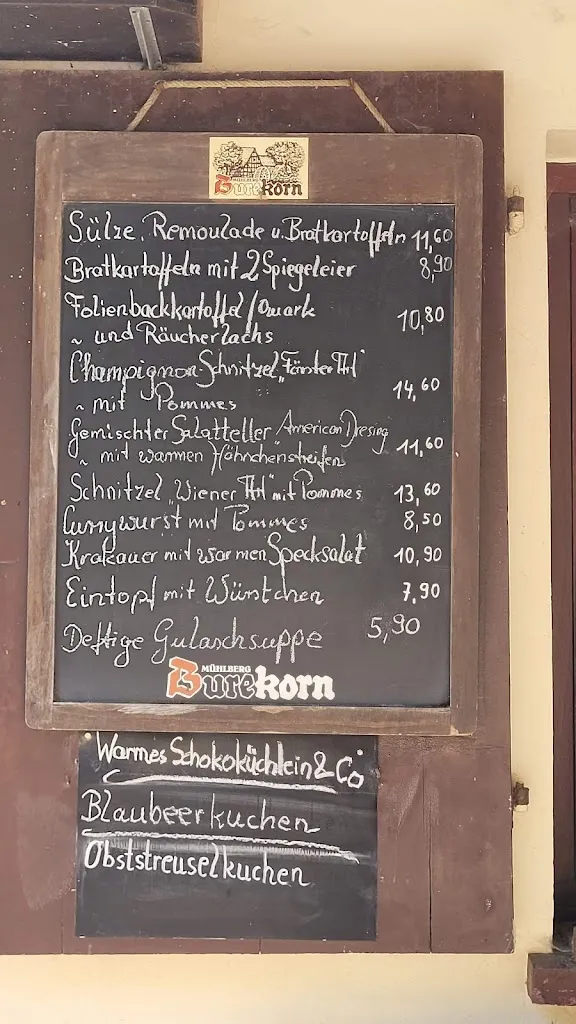 MÜHLBERG
Burekorn
Sülze, Remoulade u. Bratkartoffeln 11,60
Bratkartoffeln mit 2 Spiegeleier 8,90
Folienbackkartoffel/Quark
~ und Räucherlachs 10,80
Champignon-Schnitzel „Förster Art"
~ mit Pommes 14,60
Gemischter Salatteller American Dresing
~ mit warmen Hähnchenstreifen 11,60
Schnitzel „Wiener Art" mit Pommes 13,60
Currywurst mit Pommes 8,50
Krakauer mit warmen Specksalat 10,90
Eintopf mit Würstchen 7,90
Deftige Gulaschsuppe 5,90
MÜHLBERG
Burekorn
Warmes Schokoküchlein & Co
Blaubeerkuchen
Obststreuselkuchen